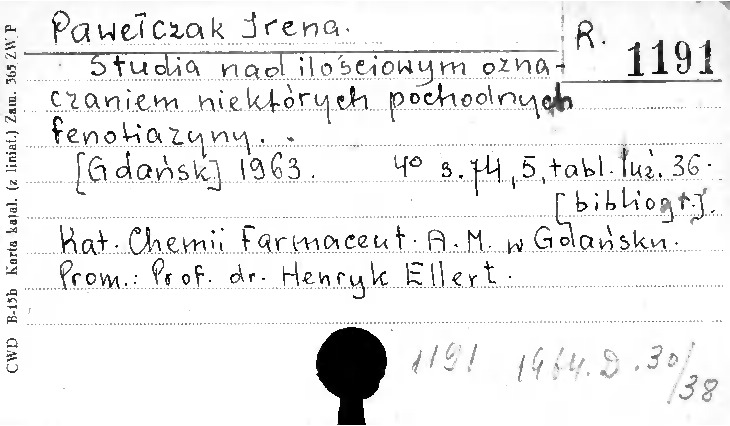 Pawełczak Irena.
R. 1191
Studia nad ilościowym ozna-
czaniem niektórych pochodnych
fenotiazyny.
[Gdańsk] 1963. 4° s. 74, 5, tabl. luź. 36.
[bibliogr.].
Kat. Chemii Farmaceut. A. M. w Gdańsku.
Prom.: Prof. dr. Henryk Ellert.
1191 1964. D. 30/38
CWD B-15b Karta katal. (z liniat.) Zam. 365 ZW P